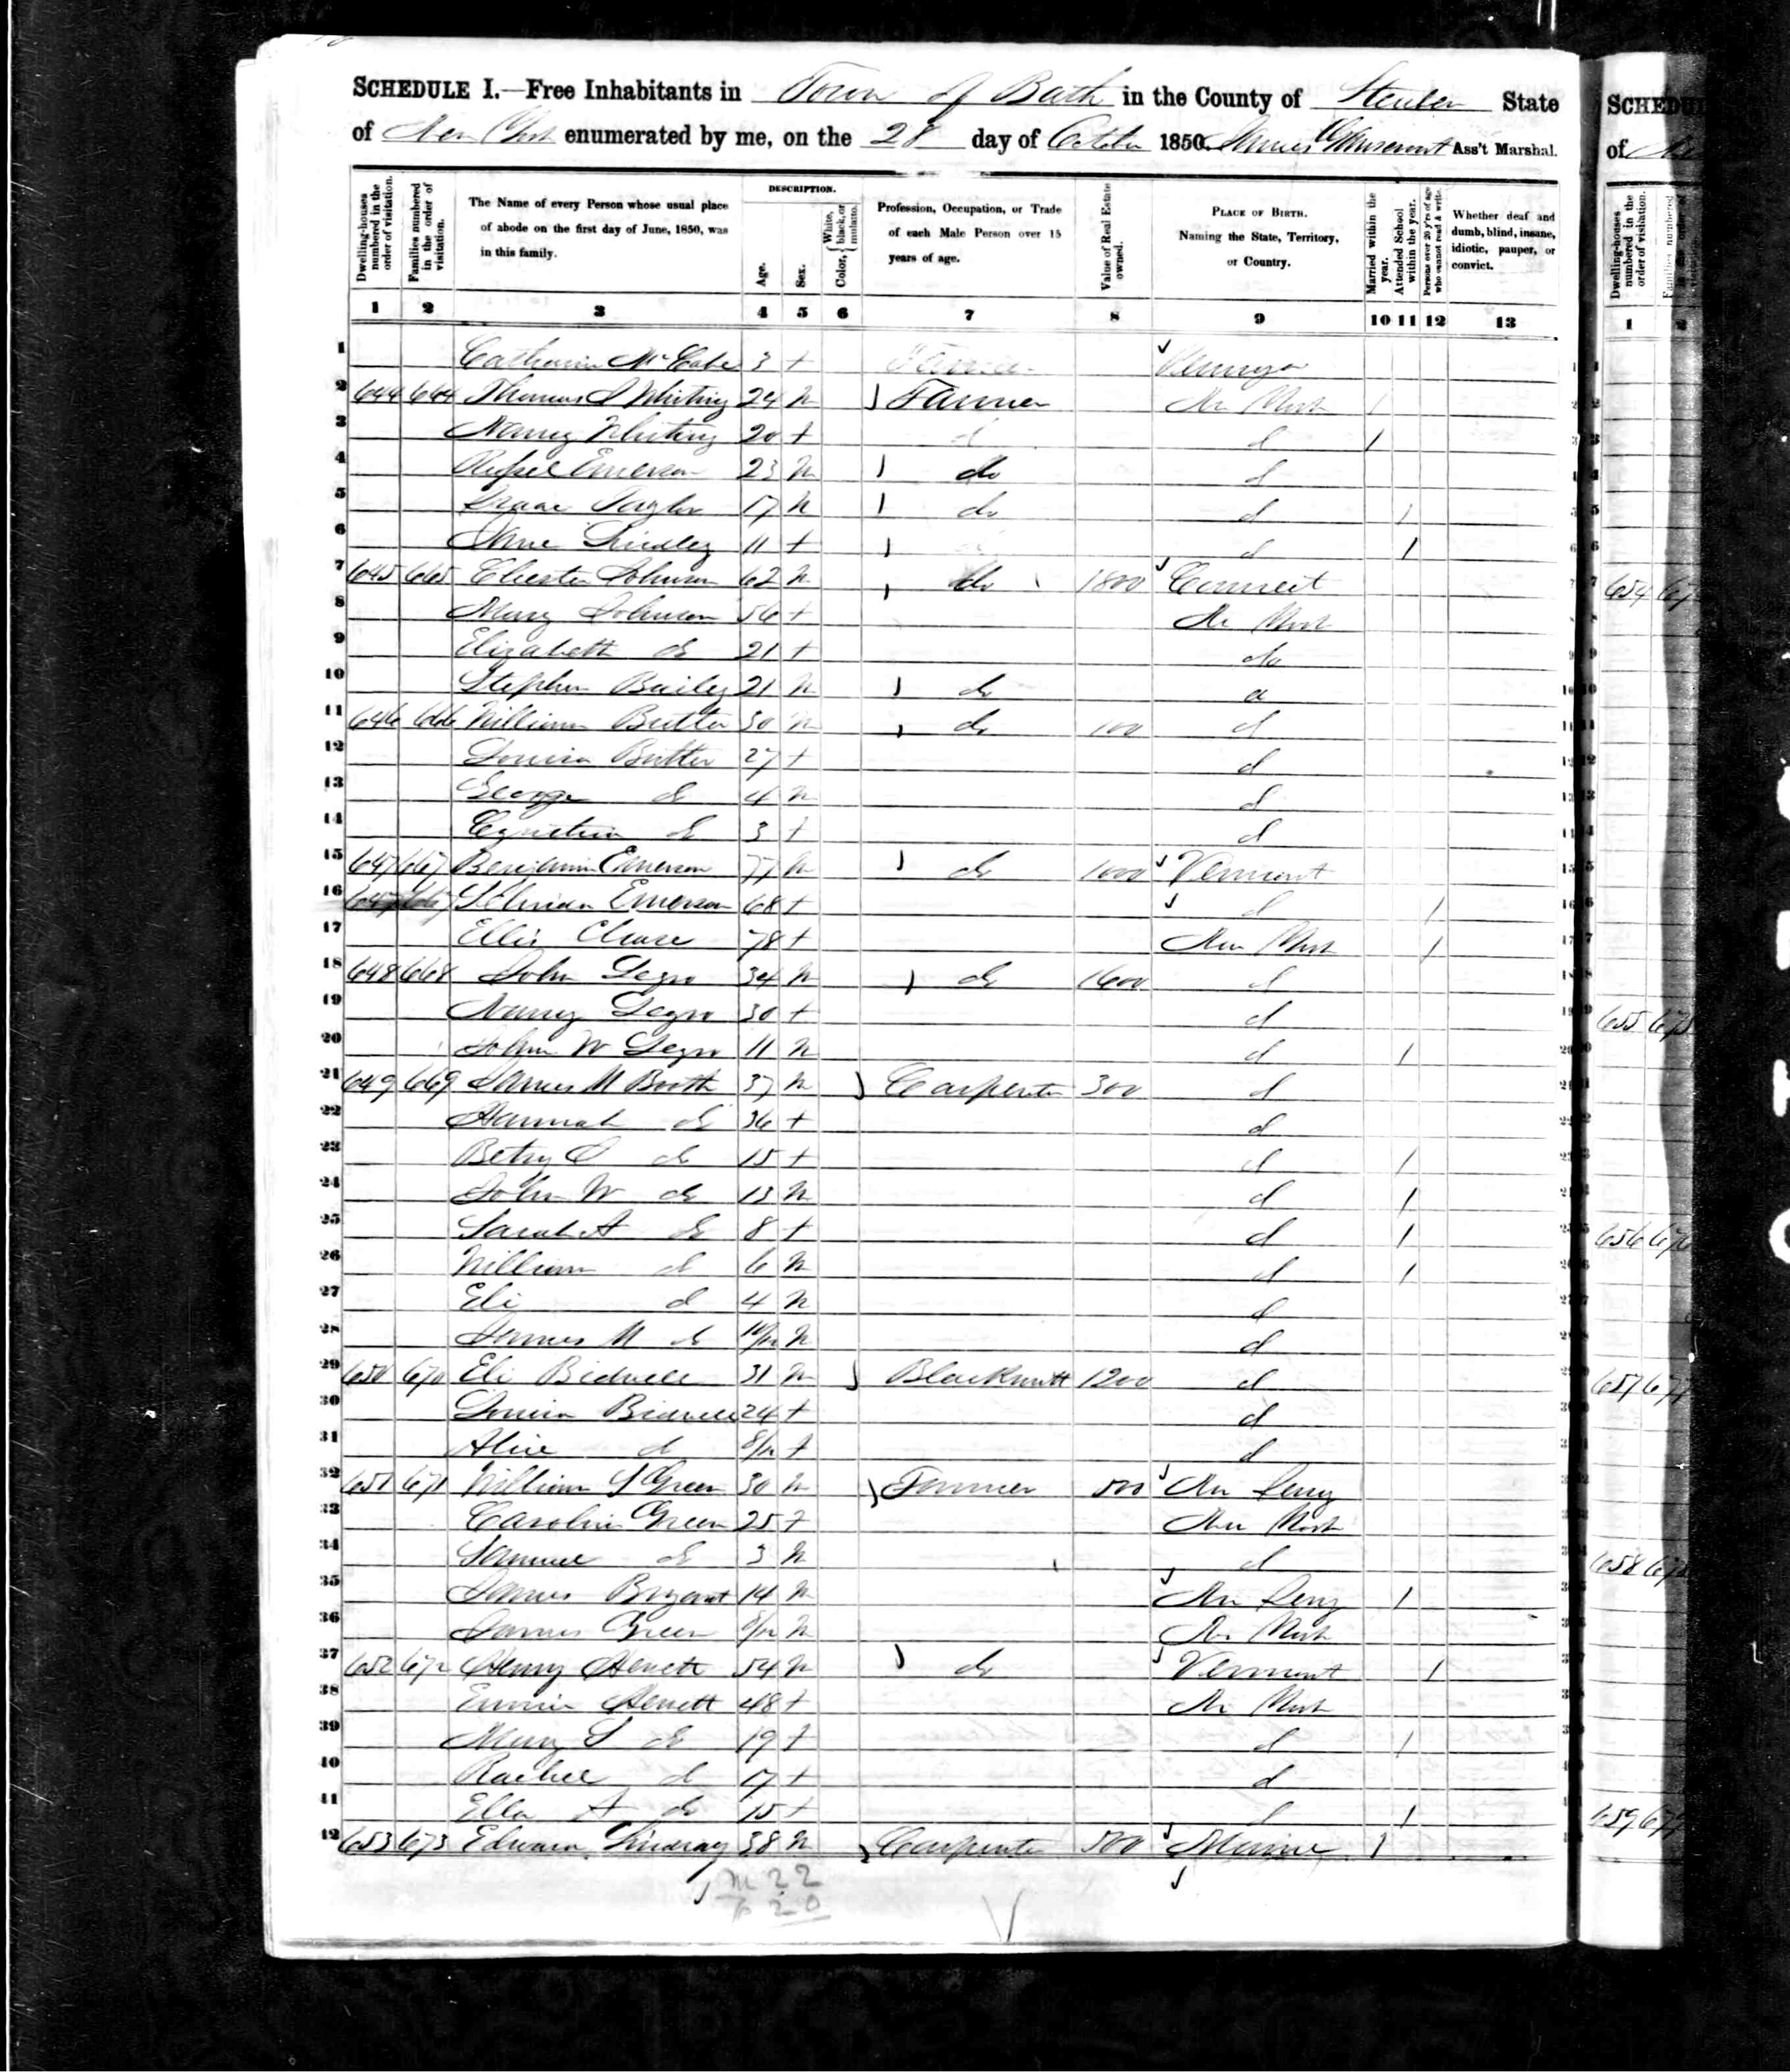 SCHEDULE I.—Free Inhabitants in Town of Bath in the County of Steuben State
of New York enumerated by me, on the 28 day of October 1850. James Ass't Marshal.
Dwelling-houses numbered in the order of visitation.
Families numbered in the order of visitation.
The Name of every Person whose usual place of abode on the first day of June, 1850, was in this family.
DESCRIPTION.
Age.
Sex.
Color, { White, black, or mulatto.
Profession, Occupation, or Trade of each Male Person over 15 years of age.
Value of Real Estate owned.
PLACE OF BIRTH. Naming the State, Territory, or Country.
Married within the year.
Attended School within the year.
Persons over 20 y'rs of age who cannot read & write.
Whether deaf and dumb, blind, insane, idiotic, pauper, or convict.
1 2 3 4 5 6 7 8 9 10 11 12 13
1 Catharine McCabe 3 f
2 644 664 Thomas S Whiting 24 m Farmer New York /
3 Nancy Whiting 20 f d d /
4 Russel Emerson 23 m do d
5 Isaac Taylor 17 m do d /
6 Jane Lindley 11 f d /
7 645 665 Chester Johnson 62 m do 1800 Connecit
8 Mary Johnson 56 f Ne York
9 Elizabeth do 21 f do
10 Stephen Bailey 21 m do d
11 646 666 William Butler 30 m do 100 d
12 Louisa Butler 27 f d
13 George do 4 m d
14 do 3 f d
15 647 667 Benjamin Emerson 77 m do 1000 Vermont
16 647 667 Emerson 68 f d /
17 Chase 78 f New York /
18 648 668 John Legro 34 m do 1600 d
19 Nancy Legro 30 f d
20 John W Legro 11 m d /
21 649 669 James M Booth 37 m Carpenter 300 d
22 Hannah do 36 f d
23 Betsy do 15 f d /
24 John W do 13 m d /
25 Sarah A do 8 f d /
26 William d 6 m d /
27 Eli d 4 m d
28 James M do 10/12 m d
29 650 670 Eli Bidwell 31 m Blacksmith 1200 d
30 Louisa Bidwell 24 f d
31 Alice d 8/12 f d
32 651 671 William S Green 30 m Farmer 500 New Jersy
33 Caroline Green 25 f New York
34 Samuel do 3 m d
35 James Bryant 14 m New Jersy /
36 James Green 8/12 m Ne York
37 652 672 Henry Hewett 54 m do Vermont /
38 Hewett 48 f Ne York
39 Mary S do 19 f d /
40 Rachel d 17 f d
41 Ella A do 15 f d /
42 653 673 Edward Lindsay 38 m Carpenter 500 Maine /
m 22
f 20
SCHEDU
of
Dwelling-houses numbered in the order of visitation.
1 2
654
655
656
657
658
659